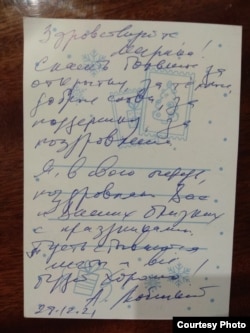 Здравствуйте
Мария!
Спасибо большое за
открытку, за
добрые слова, за
поддержку, за
поздравления.
Я, в свою очередь,
поздравляю Вас
и Ваших близких
с праздниками.
Пусть сбываются
мечты и всё
будет хорошо!
А.
29.12.21
Courtesy Photo